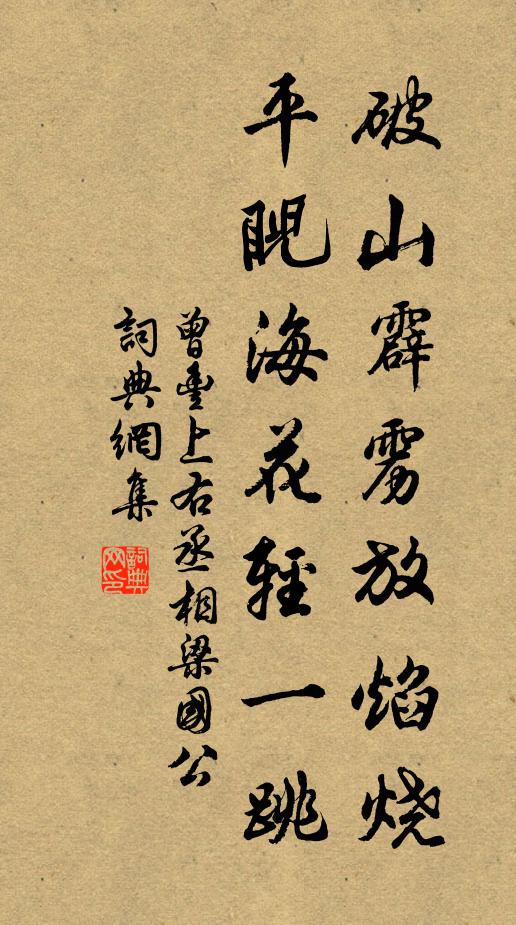 破山霹雳放焰烧
平睨海花轻一跳
曾豊上右丞相梁國公
詞典網集
詞典網印